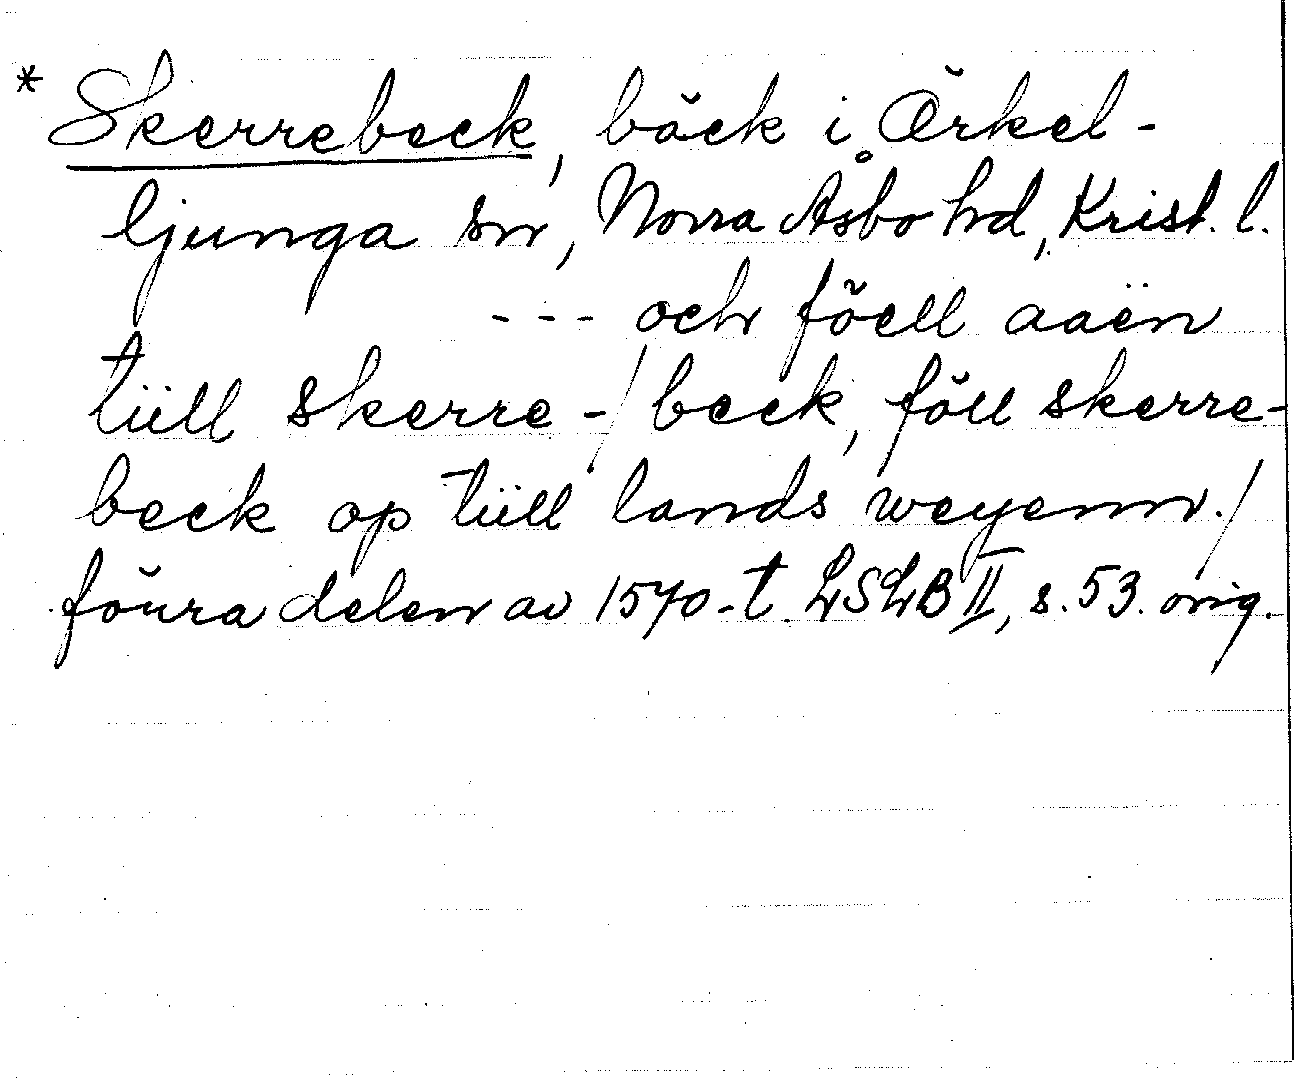 * Skerrebeck, bäck i Örkel-
ljunga sn, Norra Åsbo hd, Krist. l.
--- och föell aaën
tüll skerre-/beck, föll skerre-
beck op tüll lands weyenn./
förra delen av 1570-t. LSLB II, s. 53. orig.